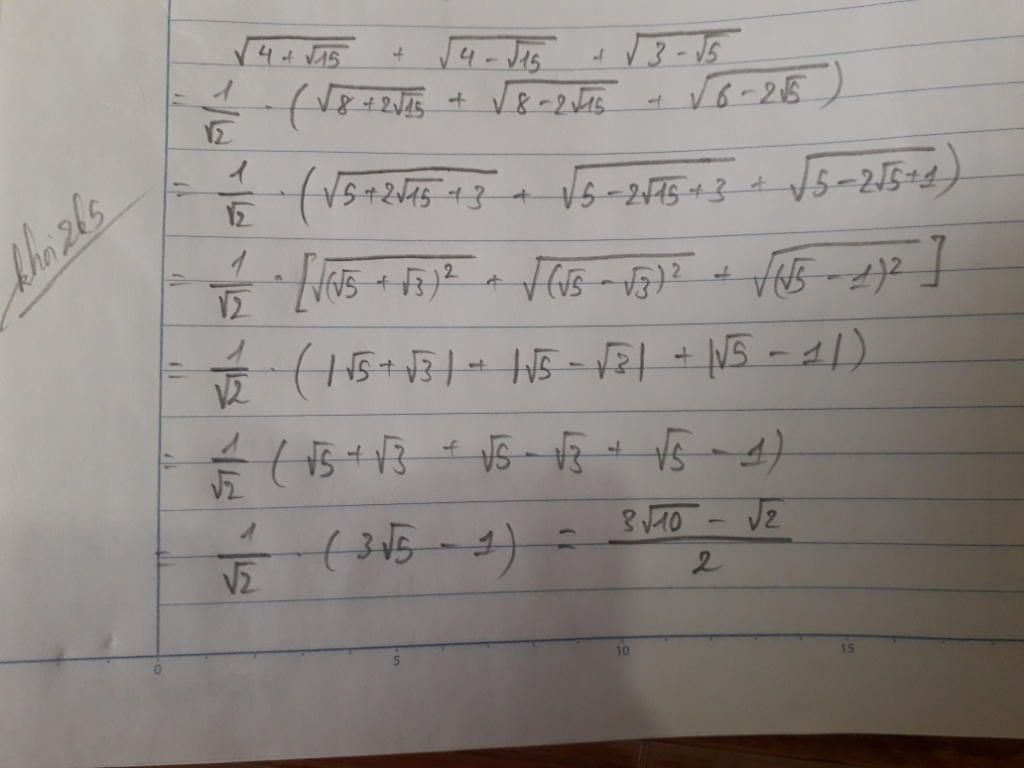 √(4 + √15) + √(4 - √15) + √(3 - √5)
= 1/√2 · (√(8 + 2√15) + √(8 - 2√15) + √(6 - 2√5))
= 1/√2 · (√(5 + 2√15 + 3) + √(5 - 2√15 + 3) + √(5 - 2√5 + 1))
= 1/√2 · [√((√5 + √3)²) + √((√5 - √3)²) + √((√5 - 1)²)]
= 1/√2 · (|√5 + √3| + |√5 - √3| + |√5 - 1|)
= 1/√2 (√5 + √3 + √5 - √3 + √5 - 1)
= 1/√2 · (3√5 - 1) = (3√10 - √2)/2
khoi265
0 5 10 15